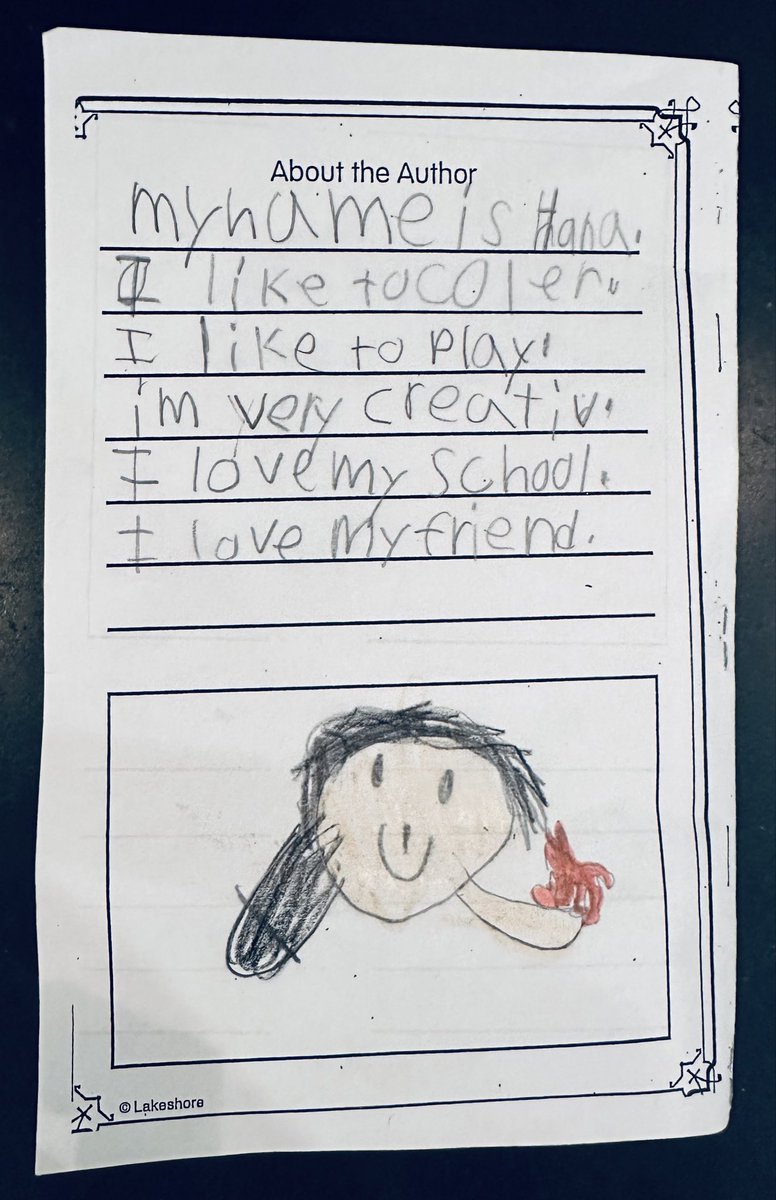 About the Author
my name is Hana.
I like to coler.
I like to play.
im very creativ.
I love my school.
I love my friend.
© Lakeshore